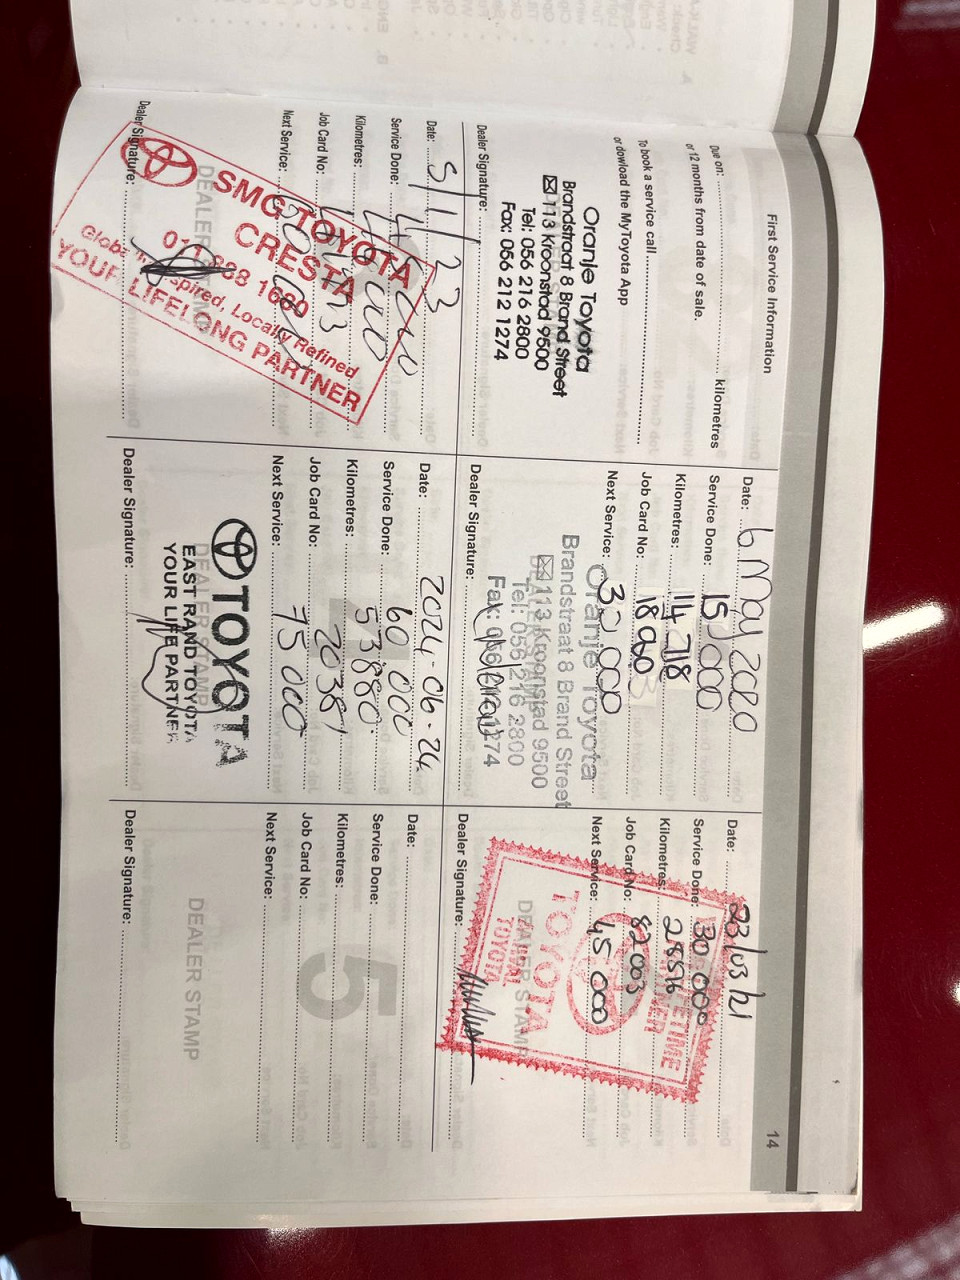 First Service Information
14
Due on: kilometres
or 12 months from date of sale.
To book a service call
or dowload the MyToyota App
Oranje Toyota
Brandstraat 8 Brand Street
113 Kroonstad 9500
Tel: 056 216 2800
Fax: 056 212 1274
Dealer Signature:
Date: 6 May 2020
Service Done: 15 000
Kilometres: 14 718
Job Card No: 18960
Next Service: 30 000
Oranje Toyota
Brandstraat 8 Brand Street
113 Kroonstad 9500
Tel: 056 216 2800
Fax: 056 212 1274
Dealer Signature:
Date: 23/03/21
Service Done: 30 000
Kilometres: 28556
Job Card No: 82003
Next Service: 45 000
DEALER STAMP
TOYOTA
TOYOTA
Dealer Signature:
Date: 5/1/23
Service Done: 45000
Kilometres:
Job Card No:
Next Service: 60 000
DEALER STAMP
SMG TOYOTA
CRESTA
Inspired, Locally Refined
YOUR LIFELONG PARTNER
Dealer Signature:
Date: 2024-06-24
Service Done: 60 000
Kilometres: 53880
Job Card No: 20387
Next Service: 75 000
DEALER STAMP
TOYOTA
EAST RAND TOYOTA
YOUR LIFE PARTNER
Dealer Signature:
5
Date:
Service Done:
Kilometres:
Job Card No:
Next Service:
DEALER STAMP
Dealer Signature: